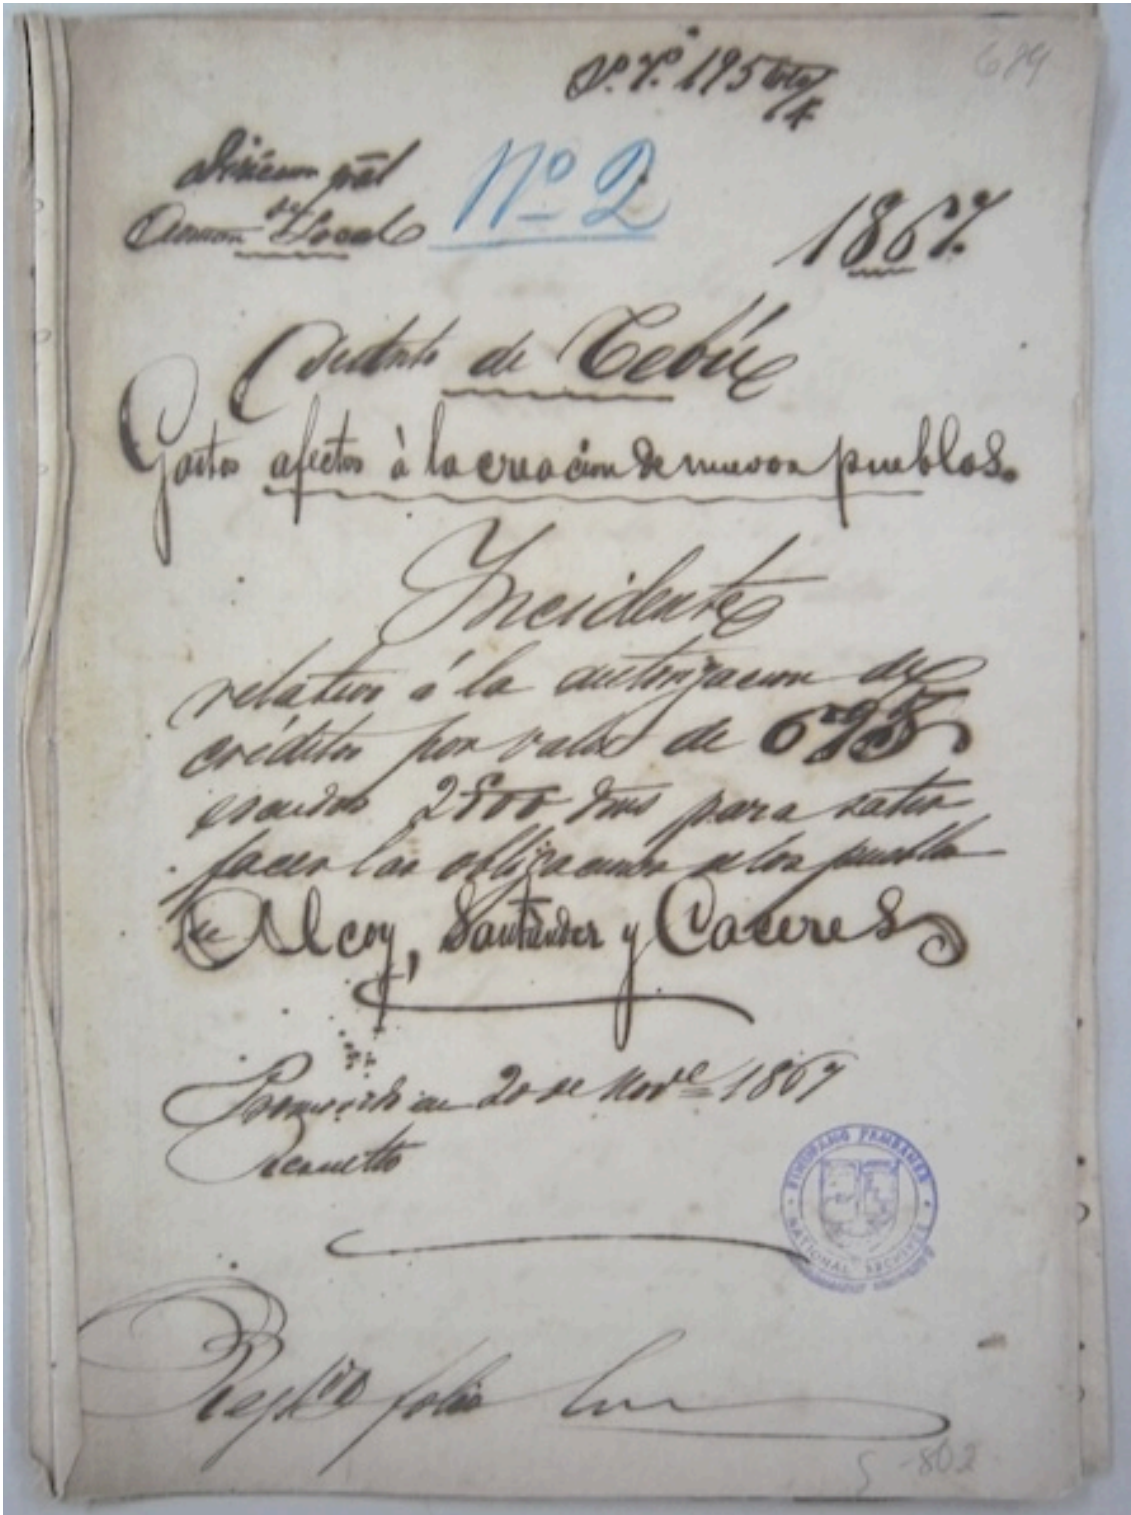 689
Nº 2
Direccion gral
de
Admon Local
1867.
Distrito de Cebú
Gastos afectos à la creacion de nuevos pueblos.
Incidente
relativo á la autorizacion de
créditos por valor de
escudos 2800 para satis
facer las obligaciones de los pueblos
de Alcoy, Santander y Caceres
en 20 de Novᵉ 1867
NATIONAL ARCHIVES
folio
802